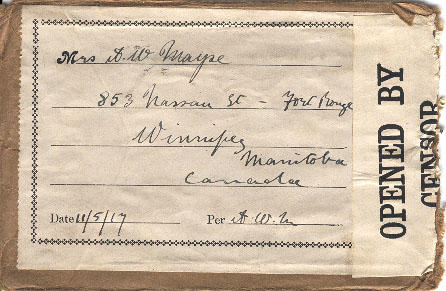 Mrs A. W. Mayse
853 Nassau St - Fort Rouge
Winnipeg
Manitoba
Canada
Date 11/5/17 Per A. W. M
OPENED BY
CENSOR